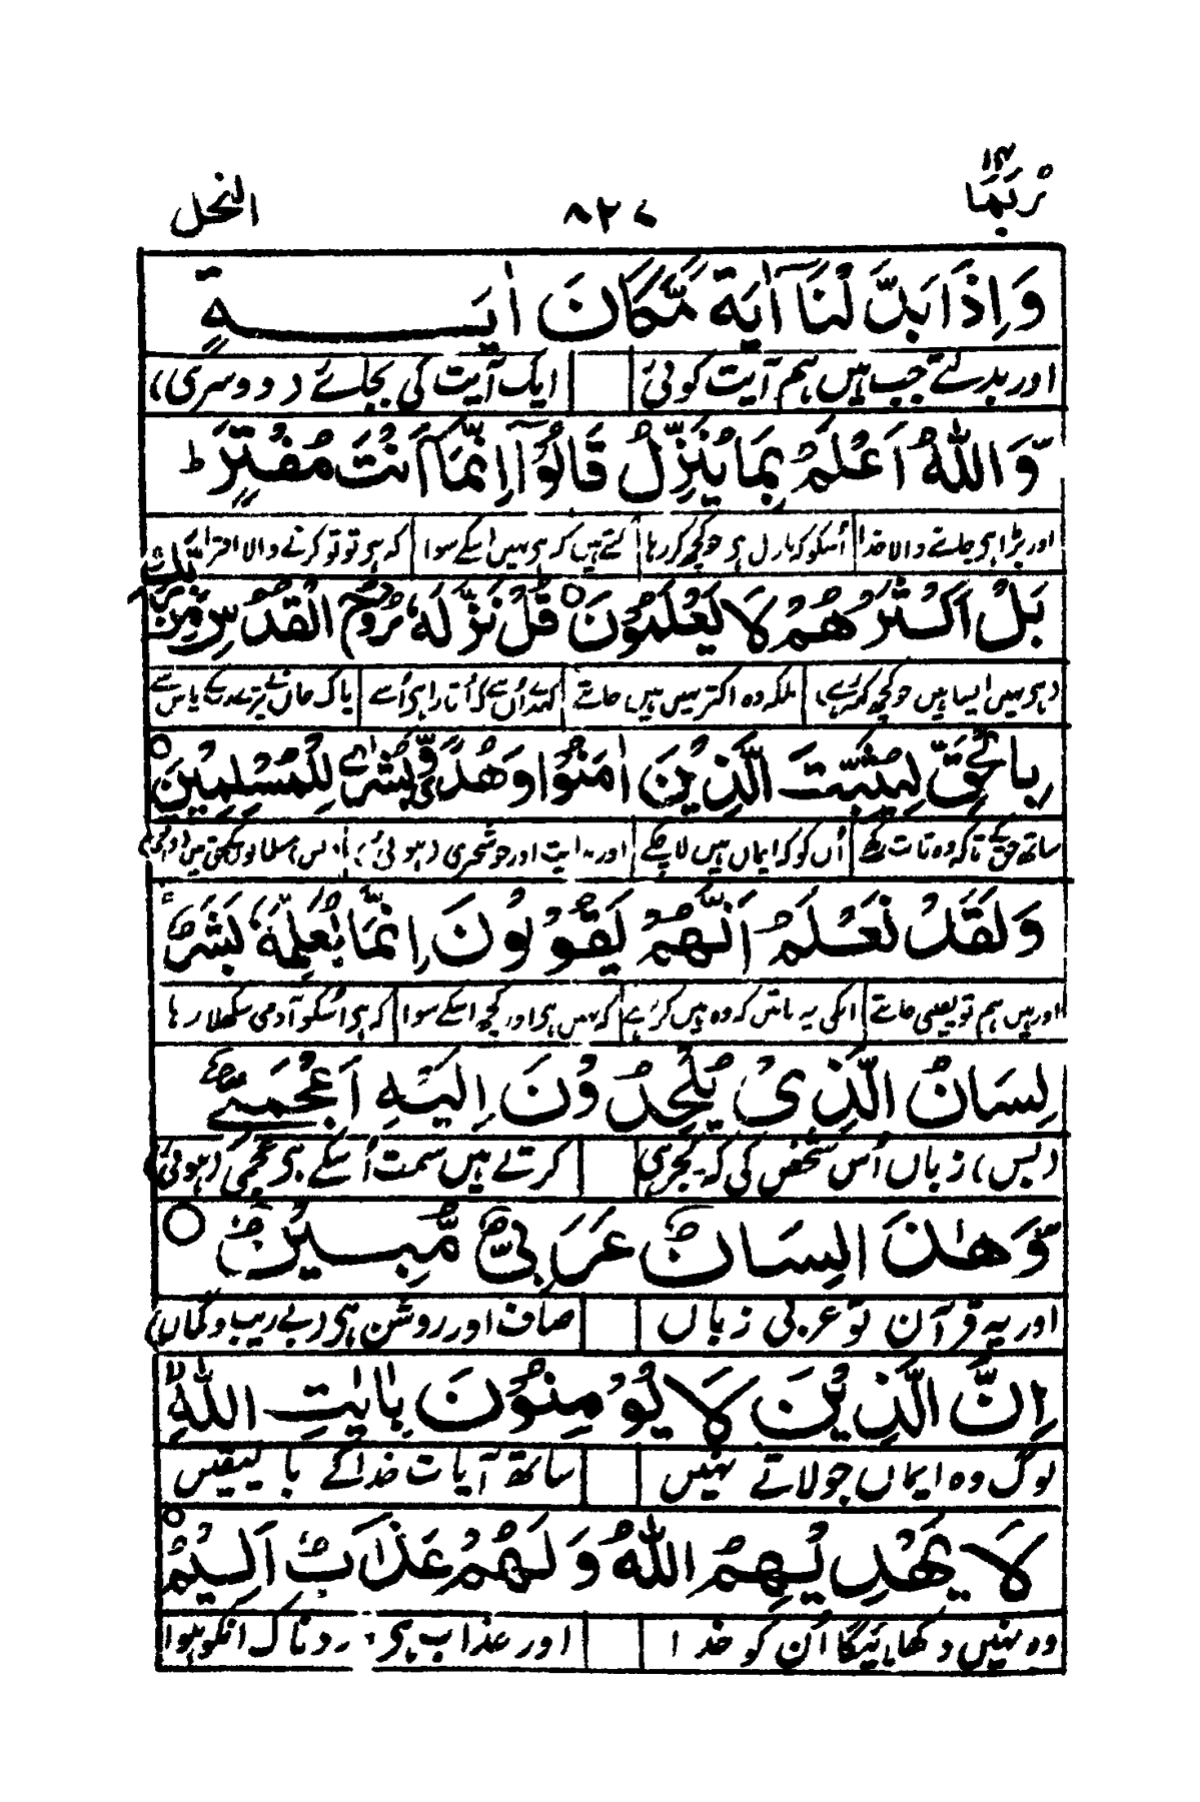 ربما ۱۴
۸۲۷
النحل
وَاِذَا بَدَّلْنَآ اٰيَةً مَّكَانَ اٰيَةٍ
اور بدلتے جب ہیں ہم آیت کوئی ایک آیت کی بجائے (دوسری)
وَّاللّٰهُ اَعْلَمُ بِمَا يُنَزِّلُ قَالُوْٓا اِنَّمَآ اَنْتَ مُفْتَرٍ ط
اور بڑا ہی جاننے والا خدا اُسکو کہ نازل ہی جو کچھ کر رہا کہتے ہیں کہ ہی نہیں اسکے سوا کہ ہی تو تو کرنے والا افترا
بَلْ اَكْثَرُهُمْ لَا يَعْلَمُوْنَ ○ قُلْ نَزَّلَهٗ رُوْحُ الْقُدُسِ مِنْ رَّبِّكَ
بلکہ وہ اکثر نہیں ہیں جانتے کہدے اُسے کہ اُتارا ہی اُسے پاک جان نے تیرے رب کے پاس سے
بِالْحَقِّ لِيُثَبِّتَ الَّذِيْنَ اٰمَنُوْا وَهُدًى وَّبُشْرٰى لِلْمُسْلِمِيْنَ ○
ساتھ حق کے تاکہ وہ ثابت رکھے اُن کو کہ ایماں ہیں لا چکے اور ہدایت اور خوشخبری (ہوئی)
وَلَقَدْ نَعْلَمُ اَنَّهُمْ يَقُوْلُوْنَ اِنَّمَا يُعَلِّمُهٗ بَشَرٌ
اور ہیں ہم تو یعنی جانتے انکی یہ باتیں کہ وہ ہیں کر رہے کہ نہیں ہی اور کچھ اسکے سوا کہ ہی اسکو آدمی سکھلا رہا
لِسَانُ الَّذِىْ يُلْحِدُوْنَ اِلَيْهِ اَعْجَمِىٌّ
(بس) زباں اُس شخص کی کہ کجرہی کرتے ہیں سمت اُسکے ہی عجمی (ہوئی)
وَّهٰذَا لِسَانٌ عَرَبِىٌّ مُّبِيْنٌ ○
اور یہ قرآن تو عربی زباں صاف اور روشن ہی (بے ریب و گماں)
اِنَّ الَّذِيْنَ لَا يُؤْمِنُوْنَ بِاٰيٰتِ اللّٰهِ
لوگ وہ ایماں جو لاتے نہیں ساتھ آیات خدا کے بالیقیں
لَا يَهْدِيْهِمُ اللّٰهُ وَلَهُمْ عَذَابٌ اَلِيْمٌ ○
وہ نہیں دکھائیگا اُن کو خدا اور عذاب ہی دردناک انکو ہوا